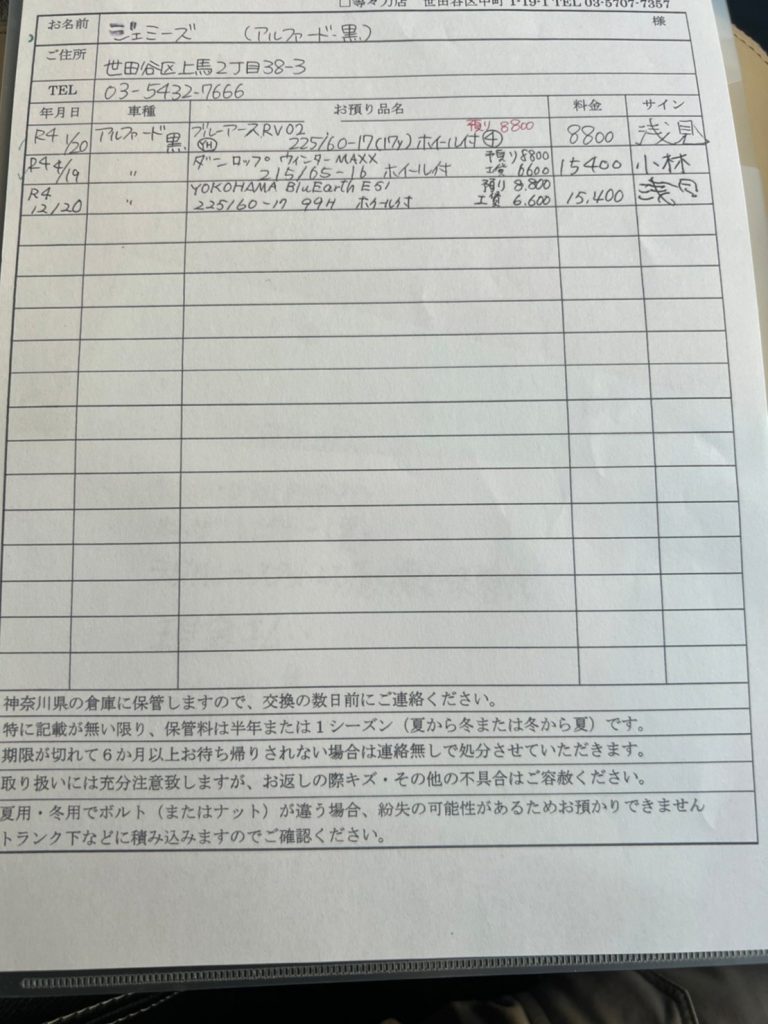 等々力店 世田谷区中町 1-19-1 TEL 03-5707-7357
お名前 ジェミーズ (アルファード・黒) 様
ご住所 世田谷区上馬2丁目38-3
TEL 03-5432-7666
年月日 車種 お預り品名 料金 サイン
R4 1/20 アルファード黒 ブルーアースRV02 預り 8800 8800 浅見
YH 225/60-17(17y) ホイール付 ④
R4 4/19 〃 ダンロップ ウィンターMAXX 預り8800 15400 小林
215/65-16 ホイール付 工賃 6600
R4 12/20 〃 YOKOHAMA BluEarth E51 預り 8.800 15.400 浅見
225/60-17 99H ホイール付 工賃 6.600
神奈川県の倉庫に保管しますので、交換の数日前にご連絡ください。
特に記載が無い限り、保管料は半年または1シーズン（夏から冬または冬から夏）です。
期限が切れて6か月以上お待ち帰りされない場合は連絡無しで処分させていただきます。
取り扱いには充分注意致しますが、お返しの際キズ・その他の不具合はご容赦ください。
夏用・冬用でボルト（またはナット）が違う場合、紛失の可能性があるためお預かりできません
トランク下などに積み込みますのでご確認ください。